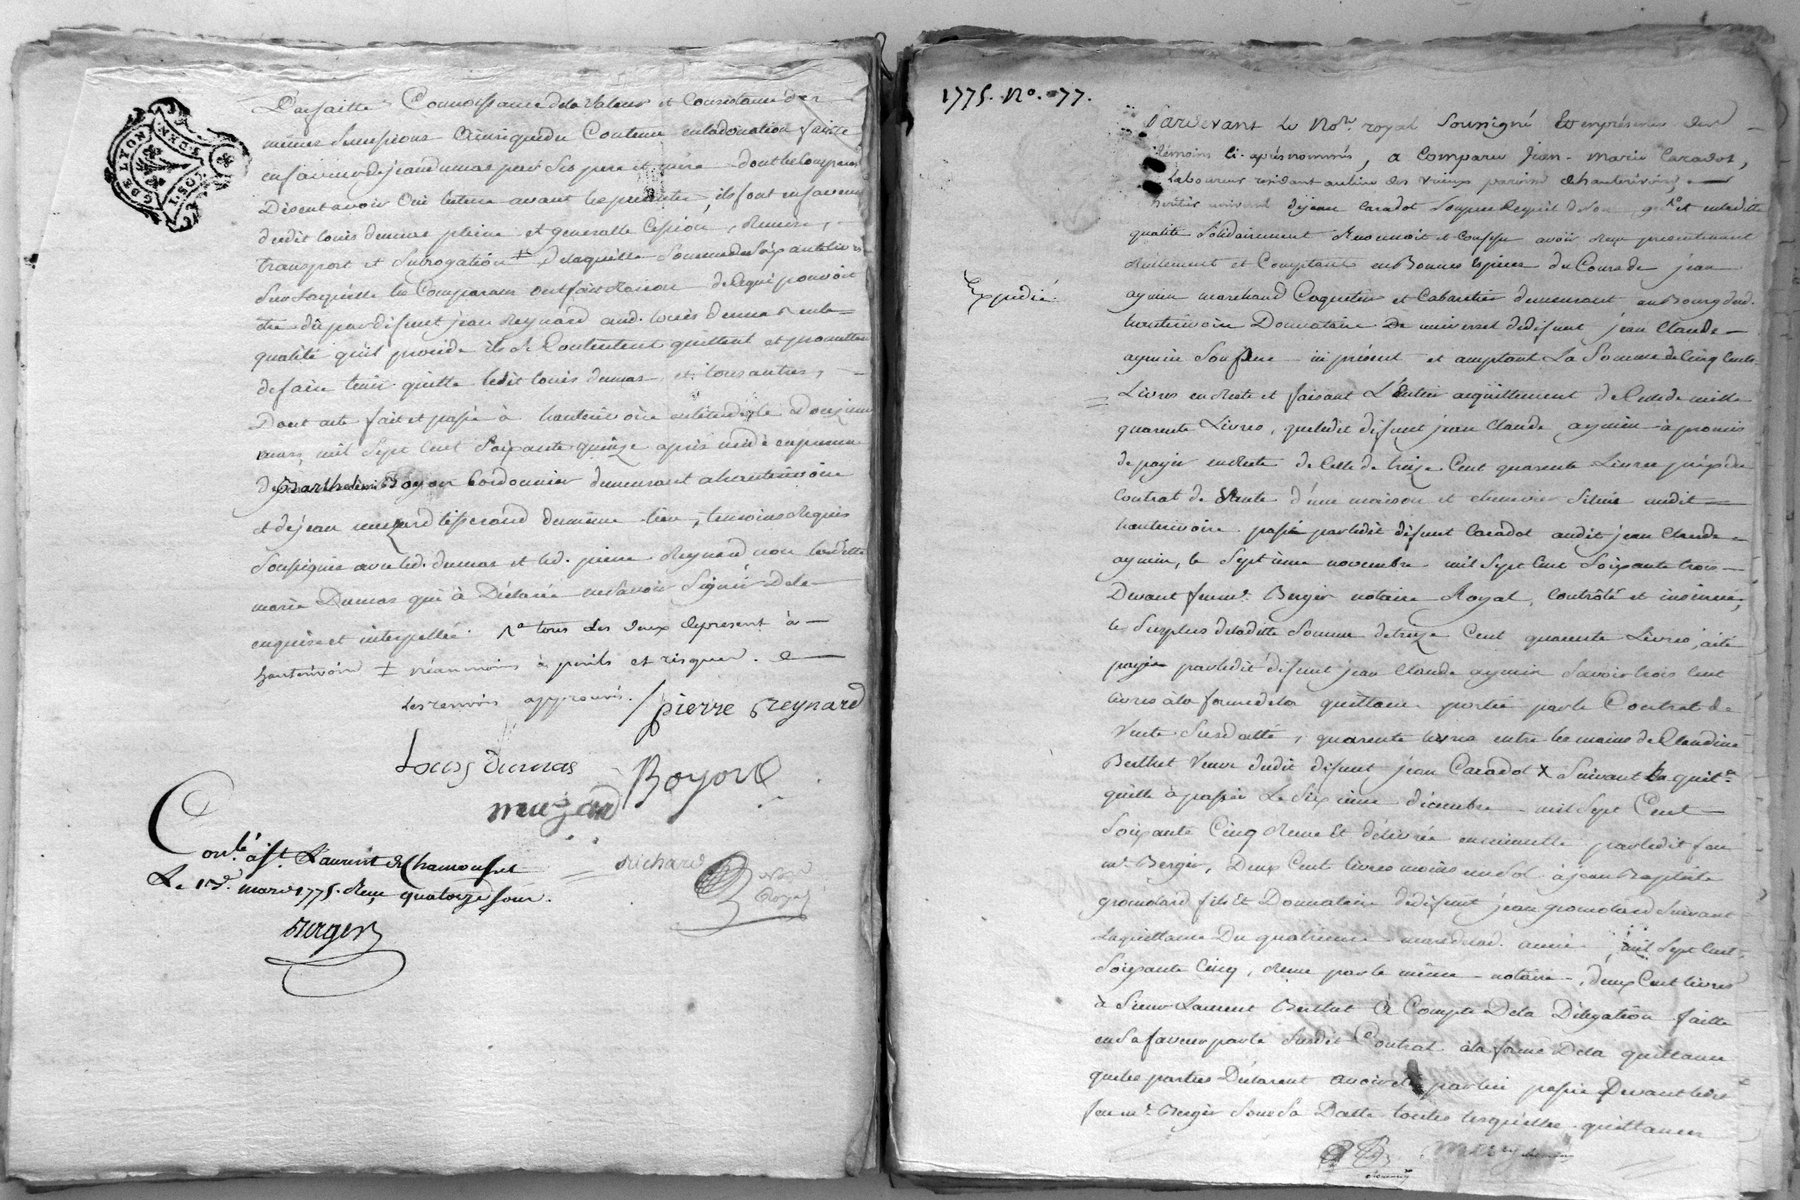 G. DE LYON
Parfaitte Connoissance de la Valeur et Consistance des
mêmes Successions Ainsi que du Contenu en la donation faitte
en faveur de jean dumas par Ses pere et mère dont les Comparants
Disent avoir Oüi lecture avant les présentes, ils font en faveur
dudit louis dumas pleine et generalle Cession, Remise,
transport et Subrogation ‡ De laquelle Somme de Soixante livres
Sur laquelle les Comparans ont fait Raison de ce qui pouvoit
être dû par défunt jean Reynard aud. louis dumas en la
qualité qu'il procède ils se Contentent quittent et promettent
de faire tenir quitte ledit louis dumas et tous autres,
Dont acte fait et passé à hauterivoire en l'étude le douzieme
mars mil Sept Cent Soixante quinze après midi en presence
de Barthelemi Boyon Cordonnier demeurant a hauterivoire
et de jean muzard tisserand du même lieu, temoins Requis
Soussignés avec led. dumas et led. pierre Reynard non ladite
marie Dumas qui à Déclaré ne Savoir Signer De ce
enquise et interpellée.
tous les deux de present à
hauterivoire ‡ néanmoins à perils et risques.
les renvois approuvés.
pierre Reynard
Louis dumas
Boyon
muzard
Richard
Not. Royal
Con.lé à S.t Laurent de Chamousset
Le mars 1775. Reçu quatorze sous.
Berger
1775. No. 77.
Expedié.
Pardevant le No.re royal Soussigné Et en présence des
témoins Ci-après nommés, a Comparu Jean-Marie Caradot,
Laboureur residant au lieu des paroisse d'hauterivoire,
héritier de jean Caradot Son pere Lequel de Son gré et en ladite
qualité Solidairement Reconnoit et Confesse avoir Reçu presentement
Réellement et Comptant en Bonnes Espèces du Cours de jean
aymin marchand Coquetier et Cabaretier demeurant au Bourg dud.
hauterivoire Donnataire universel de défunt jean Claude
aymin Son pere ici présent et acceptant La Somme de Cinq Cents
Livres en Reste et faisant L'Entier acquittement de Celle de mille
quarente Livres, que ledit défunt jean Claude aymin à promis
de payer en Reste de Celle de treize Cent quarente Livres prix du
Contrat de Vente d'une maison et chenevier Situés audit
hauterivoire passé par ledit défunt Caradot audit jean Claude
aymin, le Septième novembre mil Sept Cent Soixante trois
Devant feu m.e Berger notaire Royal, Contrôlé et insinué,
le Surplus de ladite Somme de treize Cent quarente Livres, a été
payée par ledit défunt jean Claude aymin Savoir trois Cent
livres à la forme de la quittance portée par le Contrat de
Vente Susdatté, quarente livres entre les mains de Claudine
Berthet Veuve dudit défunt jean Caradot X Suivant la quit.ce
qu'elle à passée Le Sixième décembre mil Sept Cent
Soixante Cinq Reçue Et délivrée en minutte par ledit feu
m.e Berger, Deux Cent livres moins un Sol à jean Baptiste
gromolard fils Et Donnataire de défunt jean gromolard Suivant
La quittance Du quatrieme mars de lad. année mil Sept Cent
Soixante Cinq, Reçue par le même notaire, deux Cent livres
à Sieur Laurent Berthet à Compte De la Délégation faitte
en Sa faveur par le Susdit Contrat à la forme De la quittance
que les parties Déclarent avoir été par lui passée Devant ledit
feu m.e Berger Sous Sa Datte toutes lesquelles quittances